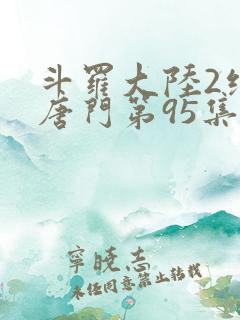 斗羅大陸2絕
唐門第95集
寧曉志
未任同意禁止轉載